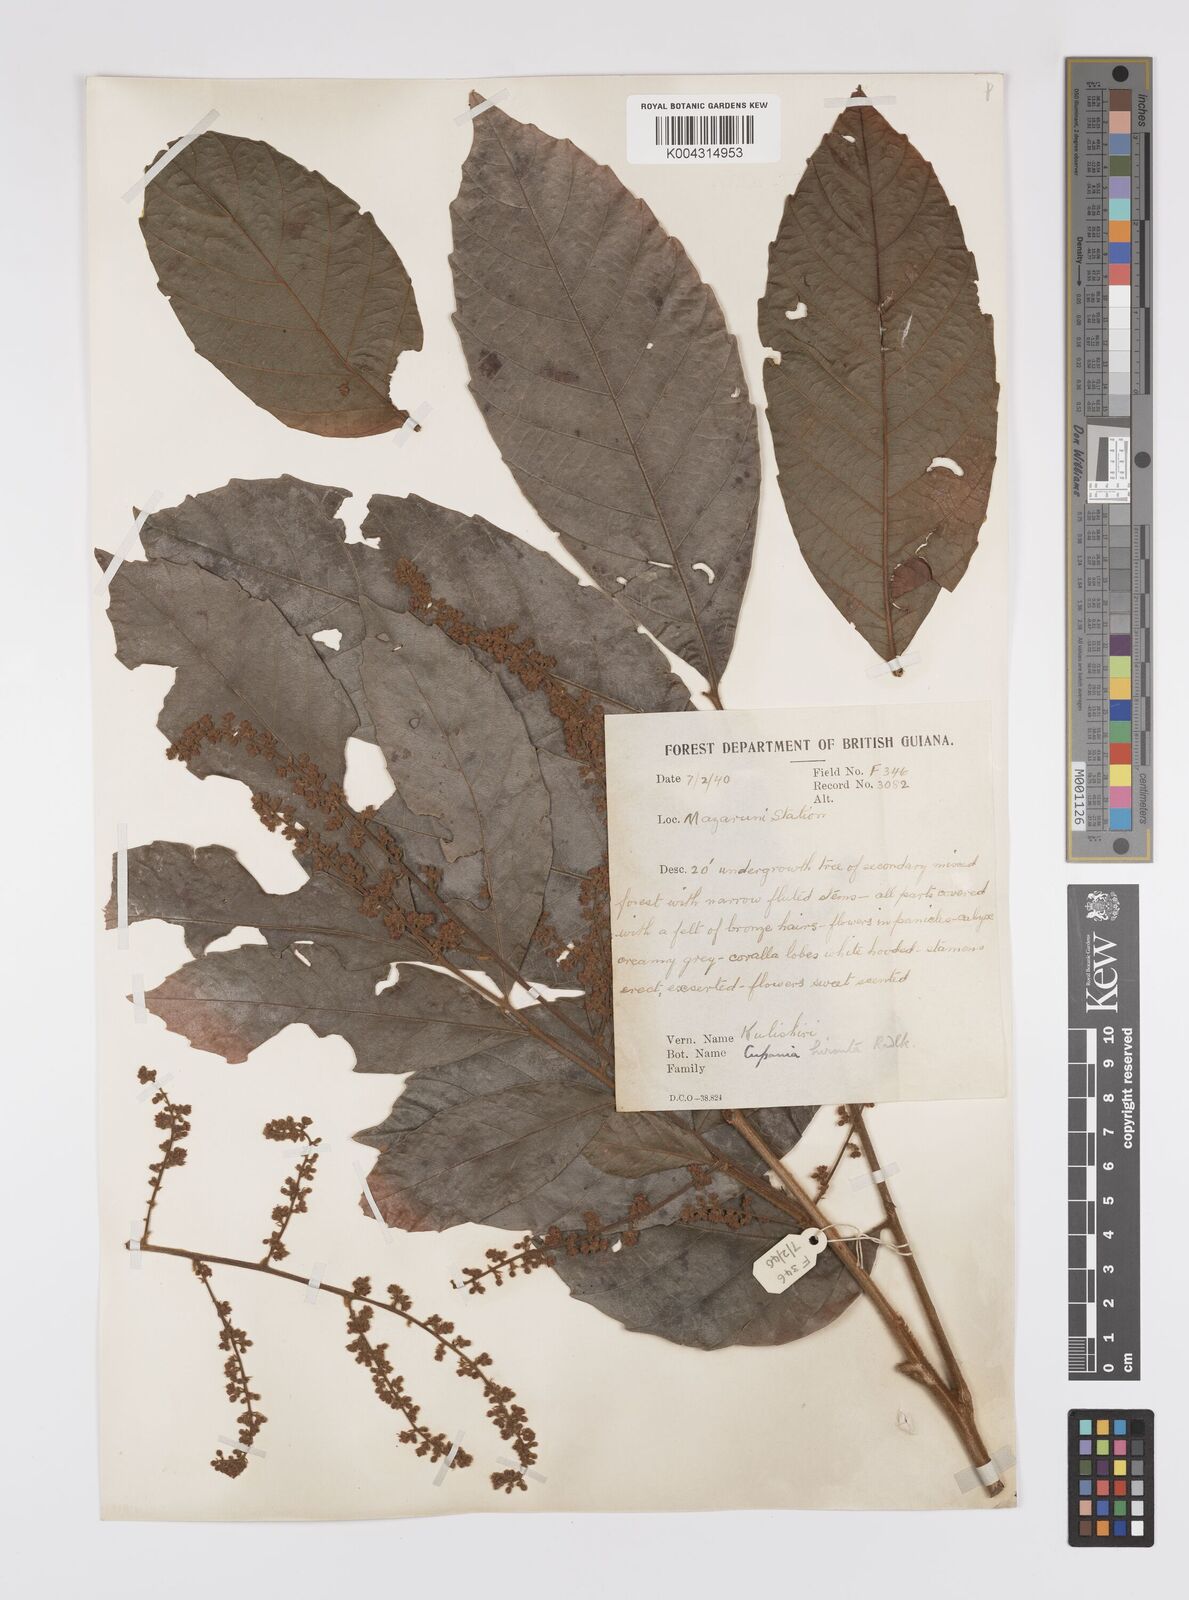 ROYAL BOTANIC GARDENS KEW
K004314953
FOREST DEPARTMENT OF BRITISH GUIANA.
Date 7/2/40
Field No. F 346
Record No. 3082
Alt.
Loc. Mazaruni Station
Desc. 20' undergrowth tree of secondary mixed
forest with narrow fluted stems - all parts covered
with a felt of bronze hairs - flowers in panicles - calyx
creamy grey - coralla lobes white hooded - stamens
erect, exserted - flowers sweet scented
Vern. Name Kulishiri
Bot. Name Cupania hirsuta Radlk.
Family
D.C.O—38.824
F 346
7/2/40
inches
centimetres
Density
Don Williams
M001126
Royal Botanic Gardens
Kew
copyright reserved
0 1 2 3 4 5 6 7 8 9 10
cm